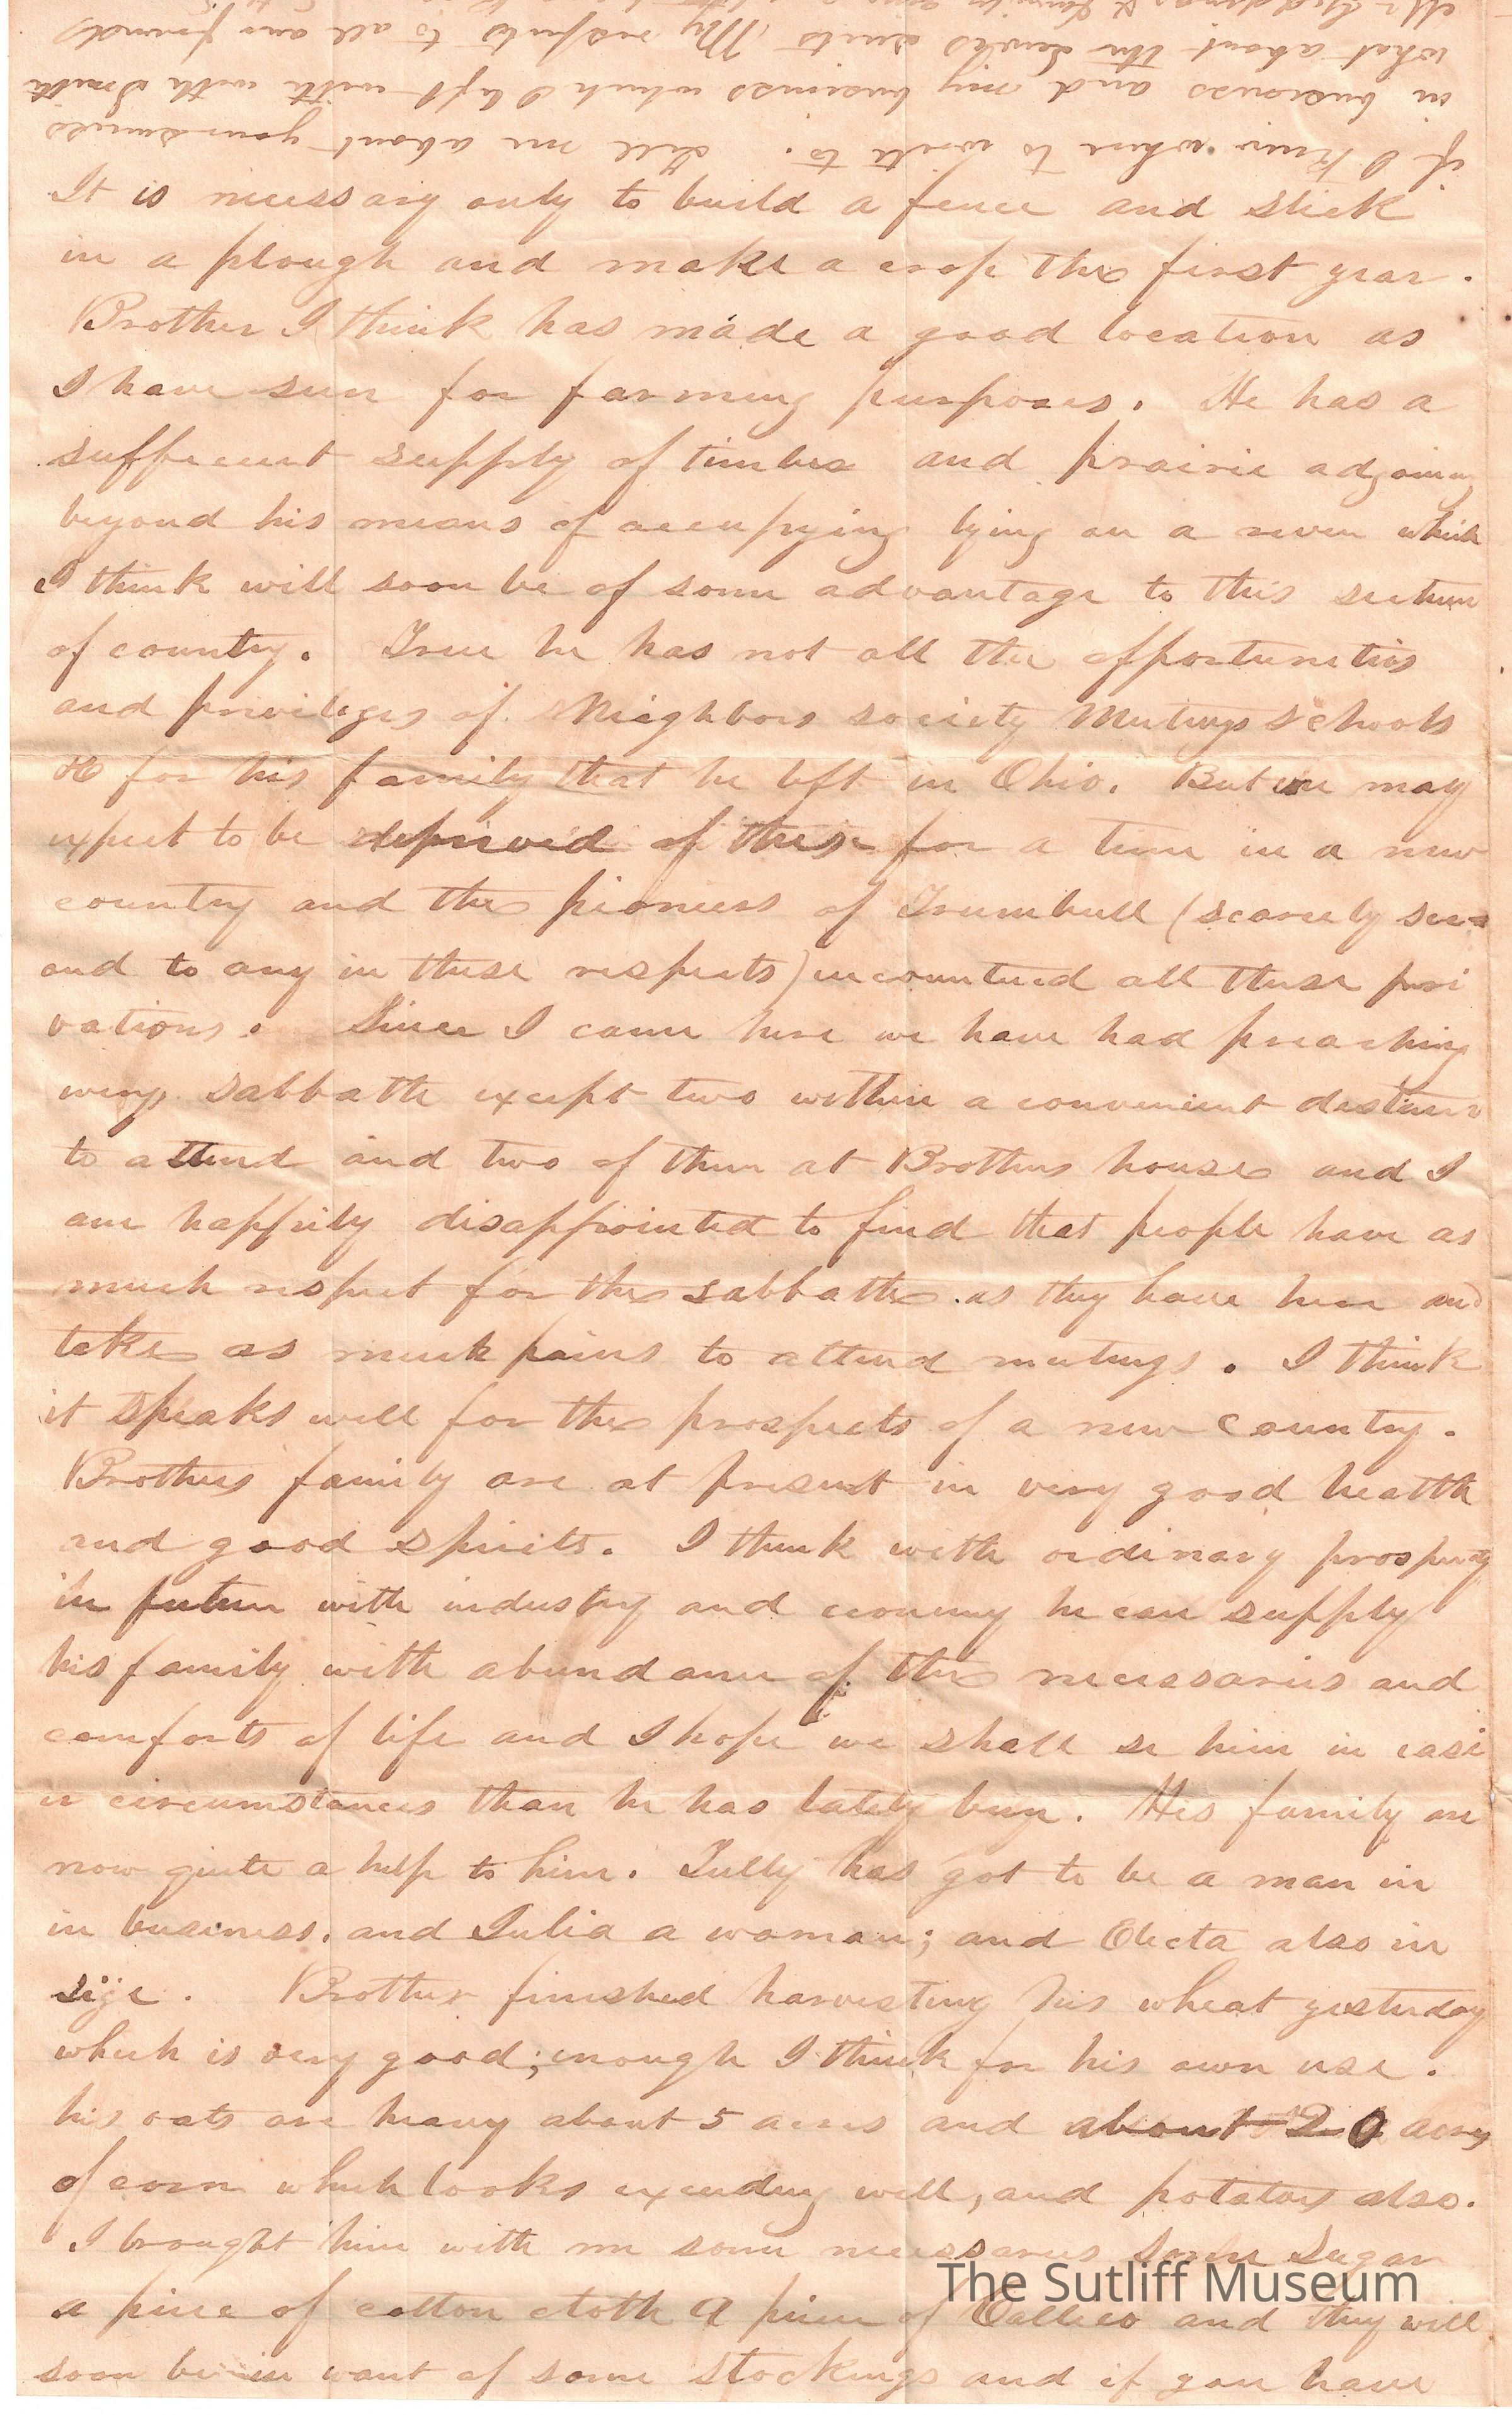 if I knew where to write to. tell me about your success
in business and my business which I left with with Smith
what about the Lewis suits My respects to all our friends
It is necessary only to build a fence and stick
in a plough and make a crop the first year.
Brother I think has made a good location as
I have seen for farming purposes. He has a
suffecient supply of timber and prairie adjoining
beyond his means of occupying lying on a river which
I think will soon be of some advantage to this section
of country. True he has not all the opportunities
and privileges of Neighbors society Meetings schools
&c for his family that he left in Ohio. But we may
expect to be deprived of these for a time in a new
country and the pioneers of Trumbull (scarcely sec=
ond to any in these respects) encountered all these pri
vations. Since I came here we have had preaching
every sabbath except two within a convenient distance
to attend and two of them at Brothers house and I
am happily disappointed to find that people have as
much respect for the sabbath as they have here and
take as much pains to attend meetings. I think
it speaks well for the prospects of a new country.
Brothers family are at present in very good health
and good spirits. I think with ordinary prosperity
in future with industry and economy he can supply
his family with abundance of the necessaries and
comforts of life and I hope we shall se him in easi
er circumstances than he has lately been. His family are
now quite a help to him. Tully has got to be a man in
in business. and Julia a woman; and Electa also in
size. Brother finished harvesting his wheat yesterday
which is very good; enough I think for his own use.
his oats are heavy about 5 acres and about 20 acres
of corn which looks exceeding well, and potatoes also.
I brought him with me some necessaries some Sugar
a piece of cotton cloth a piece of Callico and they will
soon be in want of some stockings and if you have
The Sutliff Museum